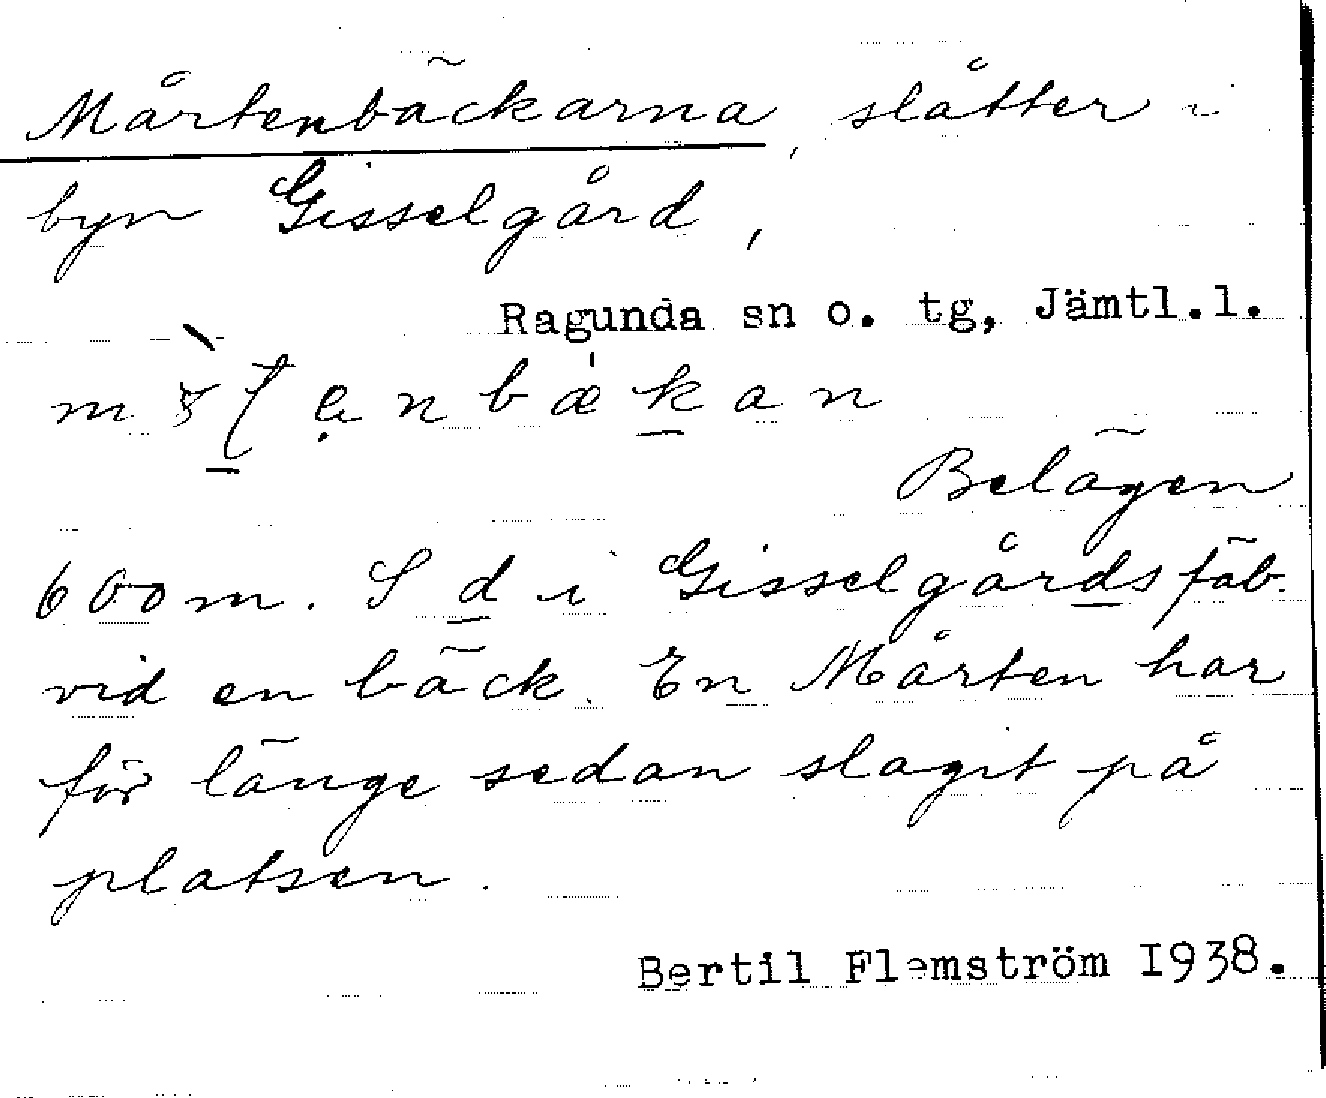 Mårtenbäckarna, slåtter i
byn Gisselgård,
Ragunda sn o. tg, Jämtl.l.
Belägen
600 m. S d i Gisselgårds fäb.
vid en bäck. En Mårten har
för länge sedan slagit på
platsen.
Bertil Flemström 1938.